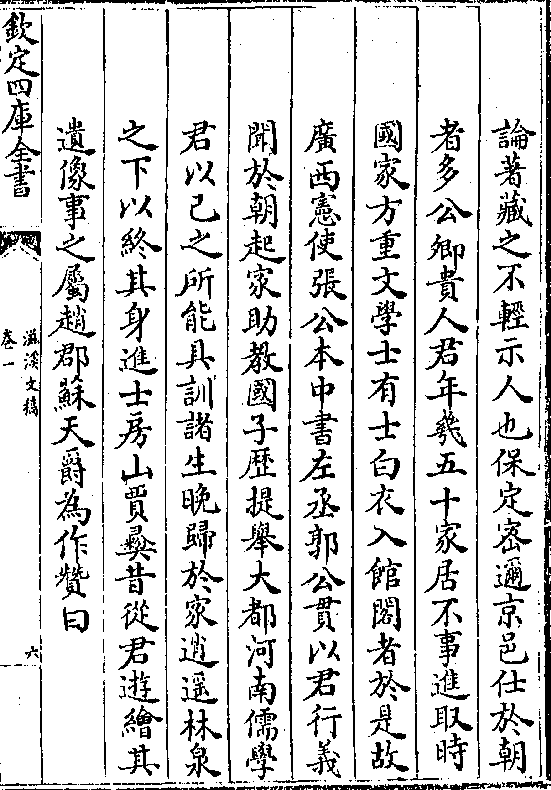 論著藏之不輕示人也保定密邇京邑仕於朝
者多公卿貴人君年幾五十家居不事進取時
國家方重文學士有士白衣入館閣者於是故
廣西憲使張公本中書左丞郭公貫以君行義
聞於朝起家助教國子歷提舉大都河南儒學
君以己之所能具訓諸生晚歸於家逍遥林泉
之下以終其身進士房山賈彝昔從君遊繪其
遺像事之屬趙郡蘇天爵為作贊曰
欽定四庫全書
滋溪文稿
卷一
六